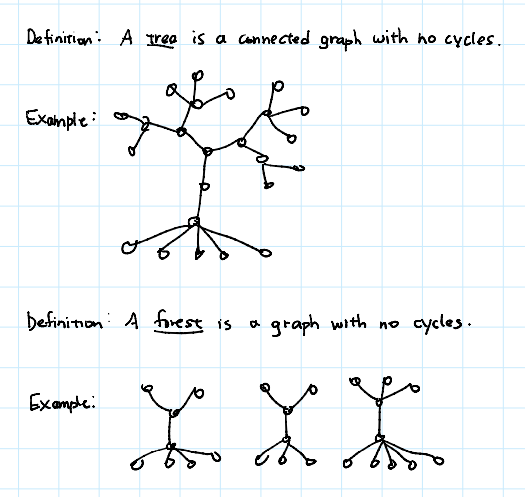 Definition: A tree is a connected graph with no cycles.
Example:
Definition: A forest is a graph with no cycles.
Example: